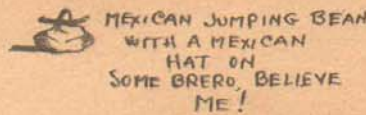 MEXICAN JUMPING BEAN
WITH A MEXICAN
HAT ON
SOME BRERO, BELIEVE
ME!